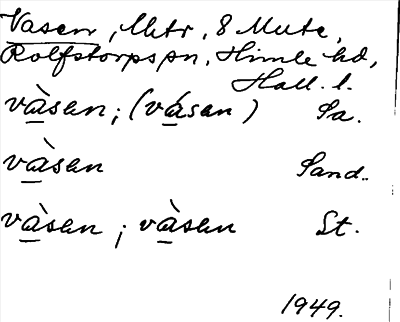 Vasen, Mtr, 8 Mute,
Rolfstorps sn, Himle hd,
Hall. l.
và̱sen; (vá̱sen) Sa.
và̱sen Sand.
và̱sen; và̱sen St.
1949.